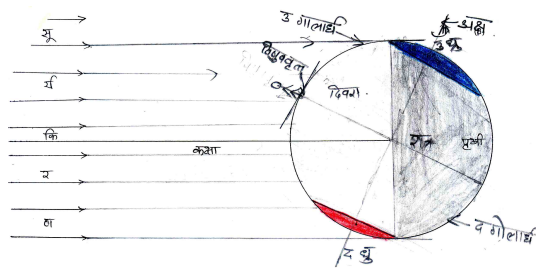 सू
र्य
कि
र
ण
उ गोलार्ध
अक्ष
उ ध्रु
विषुववृत्त
दिवस
रात्र
पृथ्वी
कक्षा
द गोलार्ध
द ध्रु